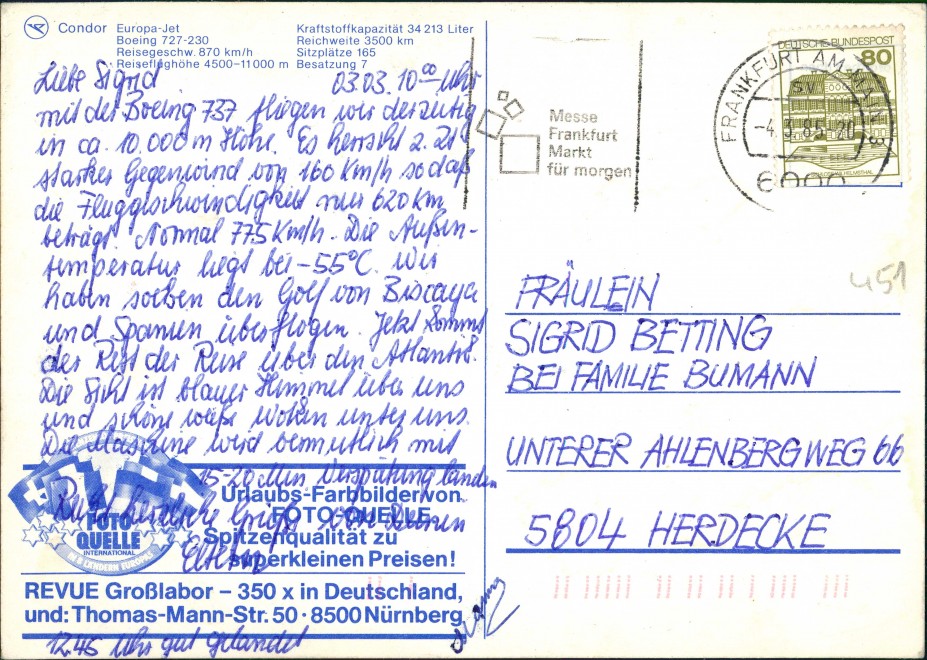 Condor
Europa-Jet
Boeing 727-230
Reisegeschw. 870 km/h
Reiseflughöhe 4500–11000 m
Kraftstoffkapazität 34 213 Liter
Reichweite 3500 km
Sitzplätze 165
Besatzung 7
Liebe Sigrid 03.03. 10⁰⁰ Uhr
mit der Boeing 737 fliegen wir derzeitig
in ca. 10.000 m Höhe. Es herrscht z. Zt.
starker Gegenwind von 160 Km/h so daß
die Fluggeschwindigkeit nur 620 Km
beträgt. Normal 775 Km/h. Die Außen-
temperatur liegt bei -55°C. Wir
haben soeben den Golf von Biscaya
und Spanien überflogen. Jetzt kommt
der Rest der Reise über den Atlantik.
Die Sicht ist blauer Himmel über uns
und schöne weiße Wolken unter uns.
Die Maschine wird vermutlich mit
15-20 Min Verspätung landen
herzliche Grüße Deinen
Eltern
12.45 Uhr gut gelandet
FOTO
QUELLE
INTERNATIONAL
IN 8 LÄNDERN EUROPAS
Urlaubs-Farbbilder von
FOTO-QUELLE
Spitzenqualität zu
superkleinen Preisen!
REVUE Großlabor – 350 x in Deutschland,
und: Thomas-Mann-Str. 50 · 8500 Nürnberg
Messe
Frankfurt
Markt
für morgen
FRANKFURT AM MAIN
SV
-4.3.85-20
6000
DEUTSCHE BUNDESPOST
80
451
FRÄULEIN
SIGRID BETTING
BEI FAMILIE BUMANN
UNTERER AHLENBERGWEG 66
5804 HERDECKE